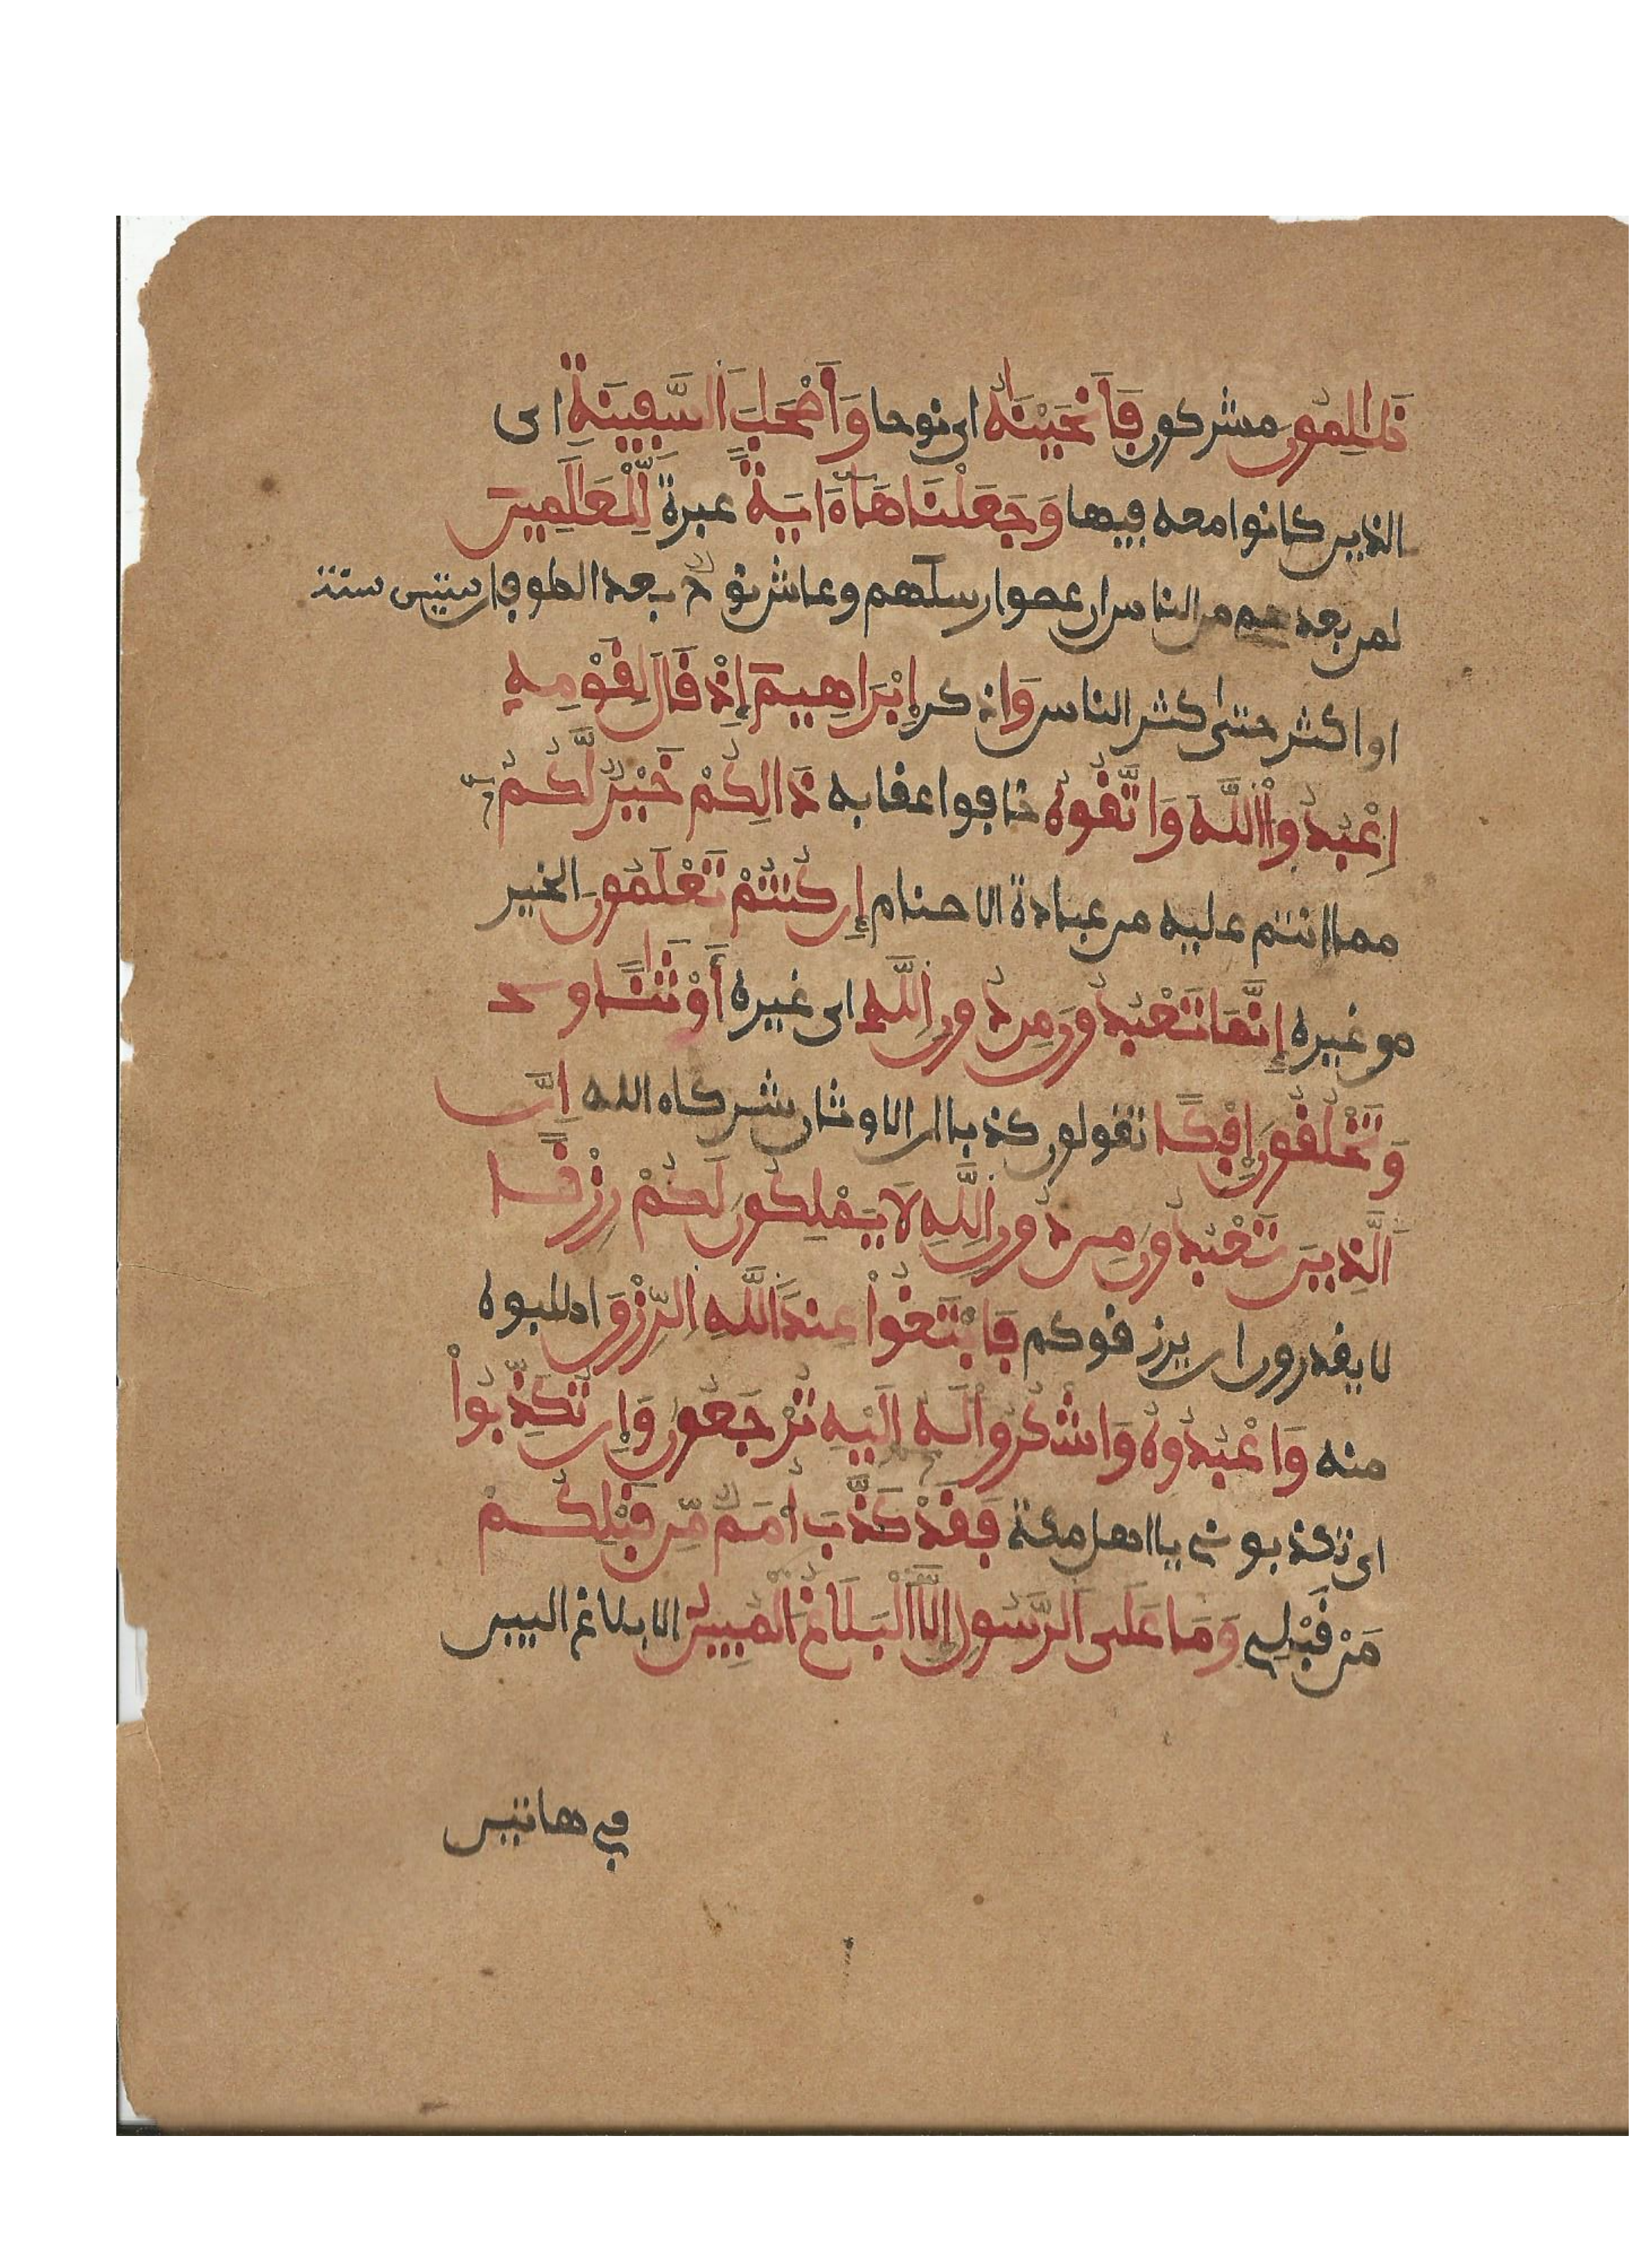 ظَالِمُون مشركون فَأَنجَيْنَاهُ اى نوحا وَأَصْحَابَ السَّفِينَةِ اى
الذين كانوا معه فيها وَجَعَلْنَاهَا ءَايَةً عبرة لِّلْعَالَمِينَ
لمن بعدهم من الناس ان عصوا رسلهم وعاش نوح بعد الطوفان ستين سنة
او اكثر حتى كثر الناس وَاذكر إِبْرَاهِيمَ إِذْ قَالَ لِقَوْمِهِ
اِعْبُدُواْ اللَّهَ وَاتَّقُوهُ خافوا عقابه ذَالِكُمْ خَيْرٌ لَّكُمْ
مما انتم عليه من عبادة الاصنام إِن كُنتُمْ تَعْلَمُونَ الخير
من غيره إِنَّمَا تَعْبُدُونَ مِن دُونِ اللَّهِ اى غيره أَوْثَانًا و
وَتَخْلُقُونَ إِفْكًا تقولون كذبا ان الاوثان شركاء الله اِنَّ
الَّذِينَ تَعْبُدُونَ مِن دُونِ اللَّهِ لَا يَمْلِكُونَ لَكُمْ رِزْقًا
لا يقدرون ان يرزقوكم فَابْتَغُواْ عِندَ اللَّهِ الرِّزْقَ اطلبوه
منه وَاعْبُدُوهُ وَاشْكُرُواْ لَهُ إِلَيْهِ تُرْجَعُونَ وَإِن تُكَذِّبُواْ
اى تكذبونى يا اهل مكة فَقَدْ كَذَّبَ أُمَمٌ مِّن قَبْلِكُمْ
مَنْ قَبْلِى وَمَا عَلَى الرَّسُولِ إِلَّا الْبَلَاغُ الْمُبِينُ الا بلاغ البين
في هاتين